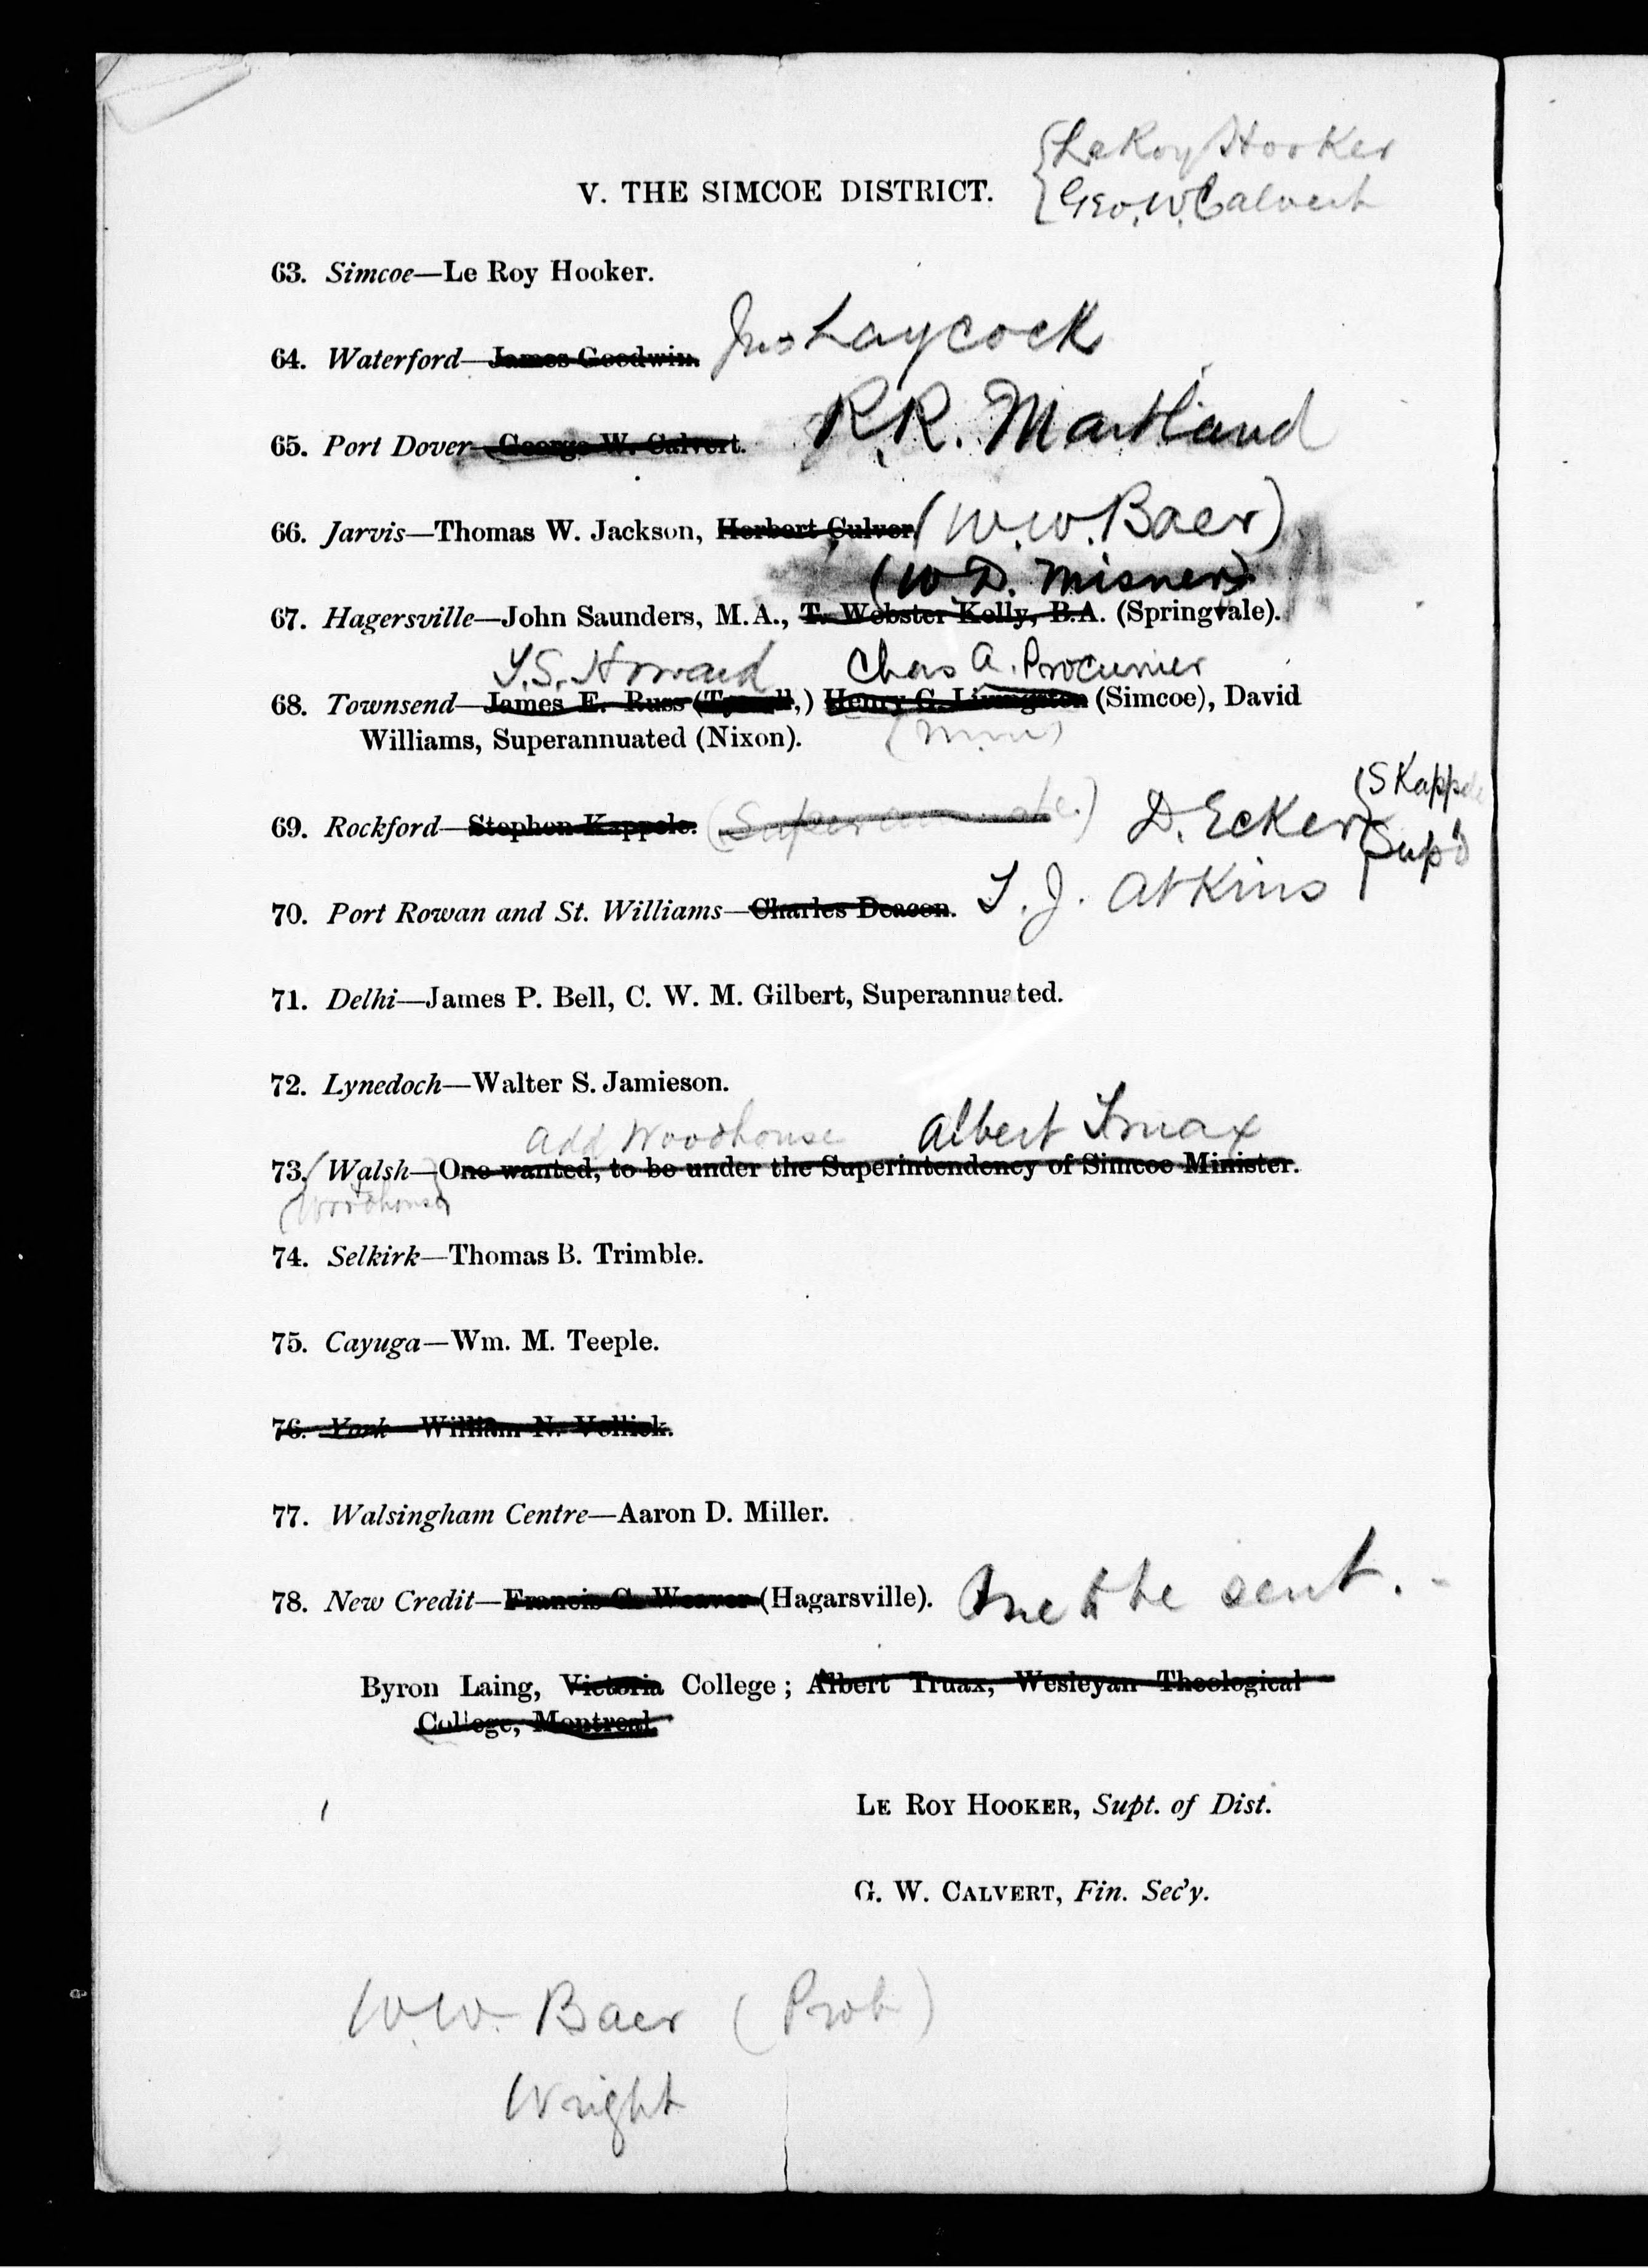 LeRoy Hooker
V. THE SIMCOE DISTRICT.
Geo. W. Calvert
63. Simcoe—Le Roy Hooker.
Jno Laycock
64. Waterford—James Goodwin.
R.R. Maitland
65. Port Dover—George W. Calvert.
66. Jarvis—Thomas W. Jackson, Herbert Culver (W.W. Baer)
(W D. Misner)
67. Hagersville—John Saunders, M.A., T. Webster Kelly, B.A. (Springvale).
T.S. Howard Chas A. Procunier
68. Townsend—James E. Russ (Tyrrell,) Henry G. Livingston (Simcoe), David
Williams, Superannuated (Nixon).
S Kappele
69. Rockford—Stephen Kappele. (Superannuate.) D. Ecker
Sup'd
70. Port Rowan and St. Williams—Charles Deacon. T. J. Atkins
71. Delhi—James P. Bell, C. W. M. Gilbert, Superannuated.
72. Lynedoch—Walter S. Jamieson.
add Woodhouse Albert Truax
73. Walsh—One wanted, to be under the Superintendency of Simcoe Minister.
(Woodhouse)
74. Selkirk—Thomas B. Trimble.
75. Cayuga—Wm. M. Teeple.
76. York—William N. Vollick.
77. Walsingham Centre—Aaron D. Miller.
78. New Credit—Francis G. Weaver (Hagarsville). One to be sent.
Byron Laing, Victoria College; Albert Truax, Wesleyan Theological
College, Montreal.
LE ROY HOOKER, Supt. of Dist.
G. W. CALVERT, Fin. Sec'y.
W.W. Baer (Prob)
Wright